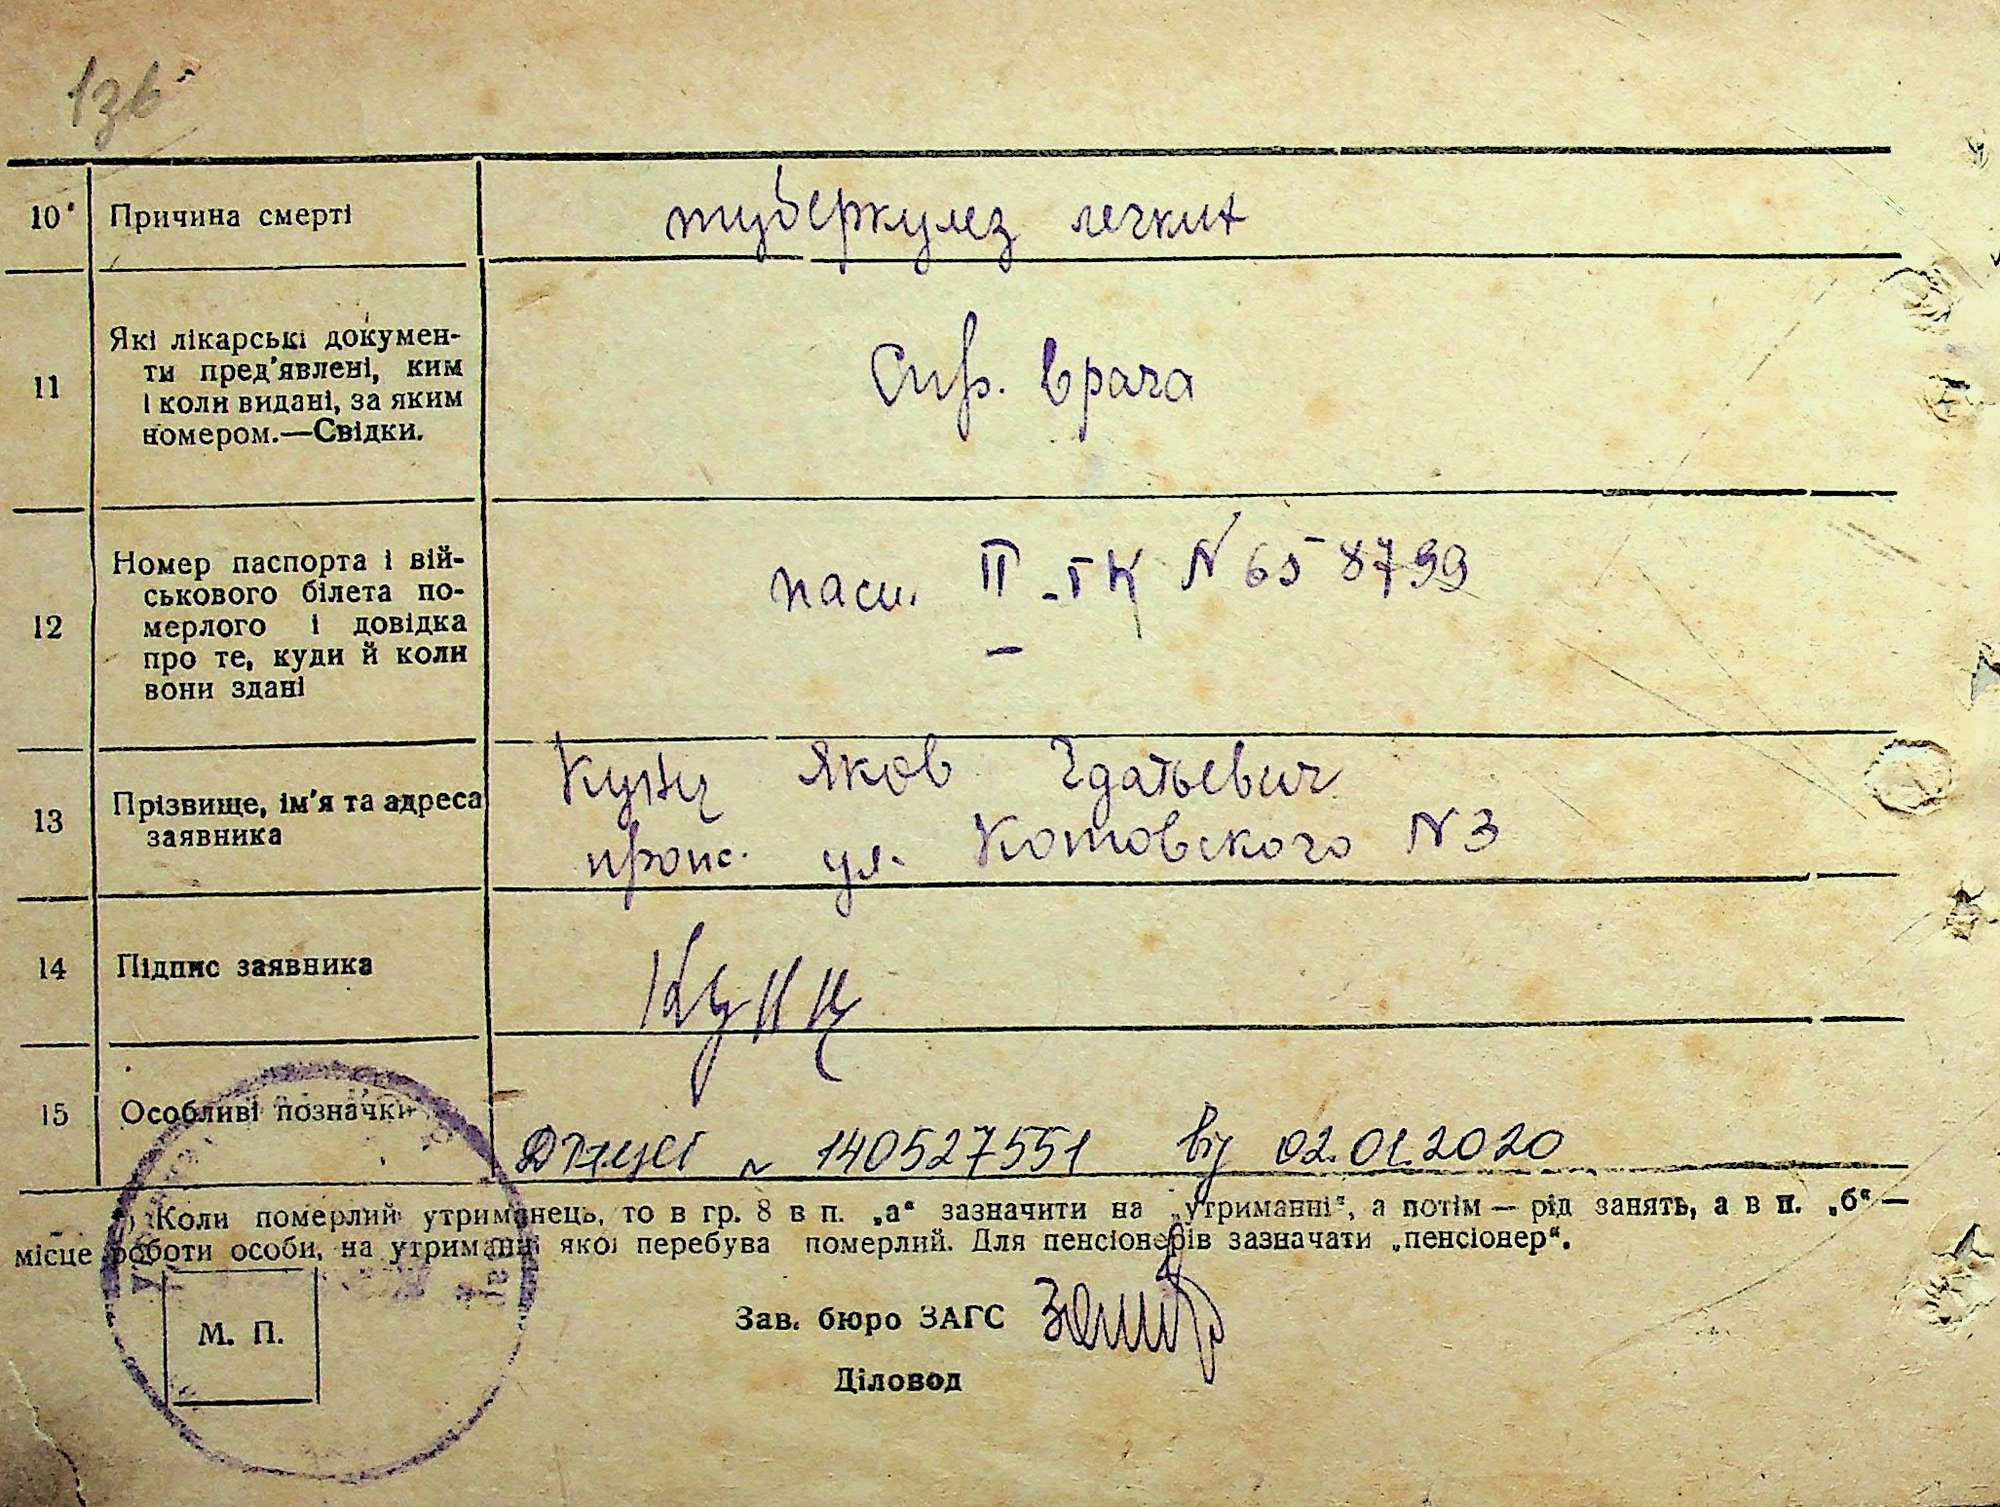 13б
10 Причина смерті туберкулез легких
11 Які лікарські докумен-
ти пред'явлені, ким
і коли видані, за яким
номером.—Свідки.
Спр. врача
12 Номер паспорта і вій-
ськового білета по-
мерлого і довідка
про те, куди й коли
вони здані
пасп. II-ГК N 658799
—
13 Прізвище, ім'я та адреса
заявника
Кунц Яков
прож. ул. Котовского N 3
14 Підпис заявника Кунц
15 Особливі позначки
N 140527551 від 02.01.2020
Коли померлий утриманець, то в гр. 8 в п. „а“ зазначити на „утриманні“, а потім — рід занять, а в п. „б“ —
місце роботи особи, на утриманні якої перебува померлий. Для пенсіонерів зазначати „пенсіонер“.
М. П.
Зав. бюро ЗАГС
Діловод